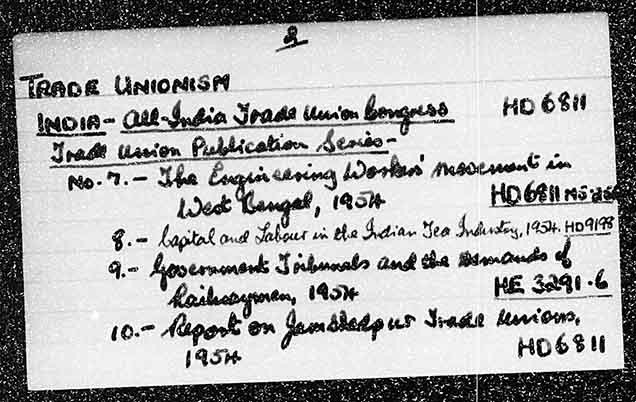 2
TRADE UNIONISM
INDIA - All-India Trade Union Congress HD 6811
Trade Union Publication Series -
No. 7. - The Engineering Workers' movement in
West Bengal, 1954 HD6811
8. - Capital and Labour in the Indian Tea Industry, 1954. HD9198
9. - Government Tribunals and the demands of
Railwaymen, 1954 HE 3291.6
10. - Report on Jamshedpur Trade Unions,
1954 HD6811